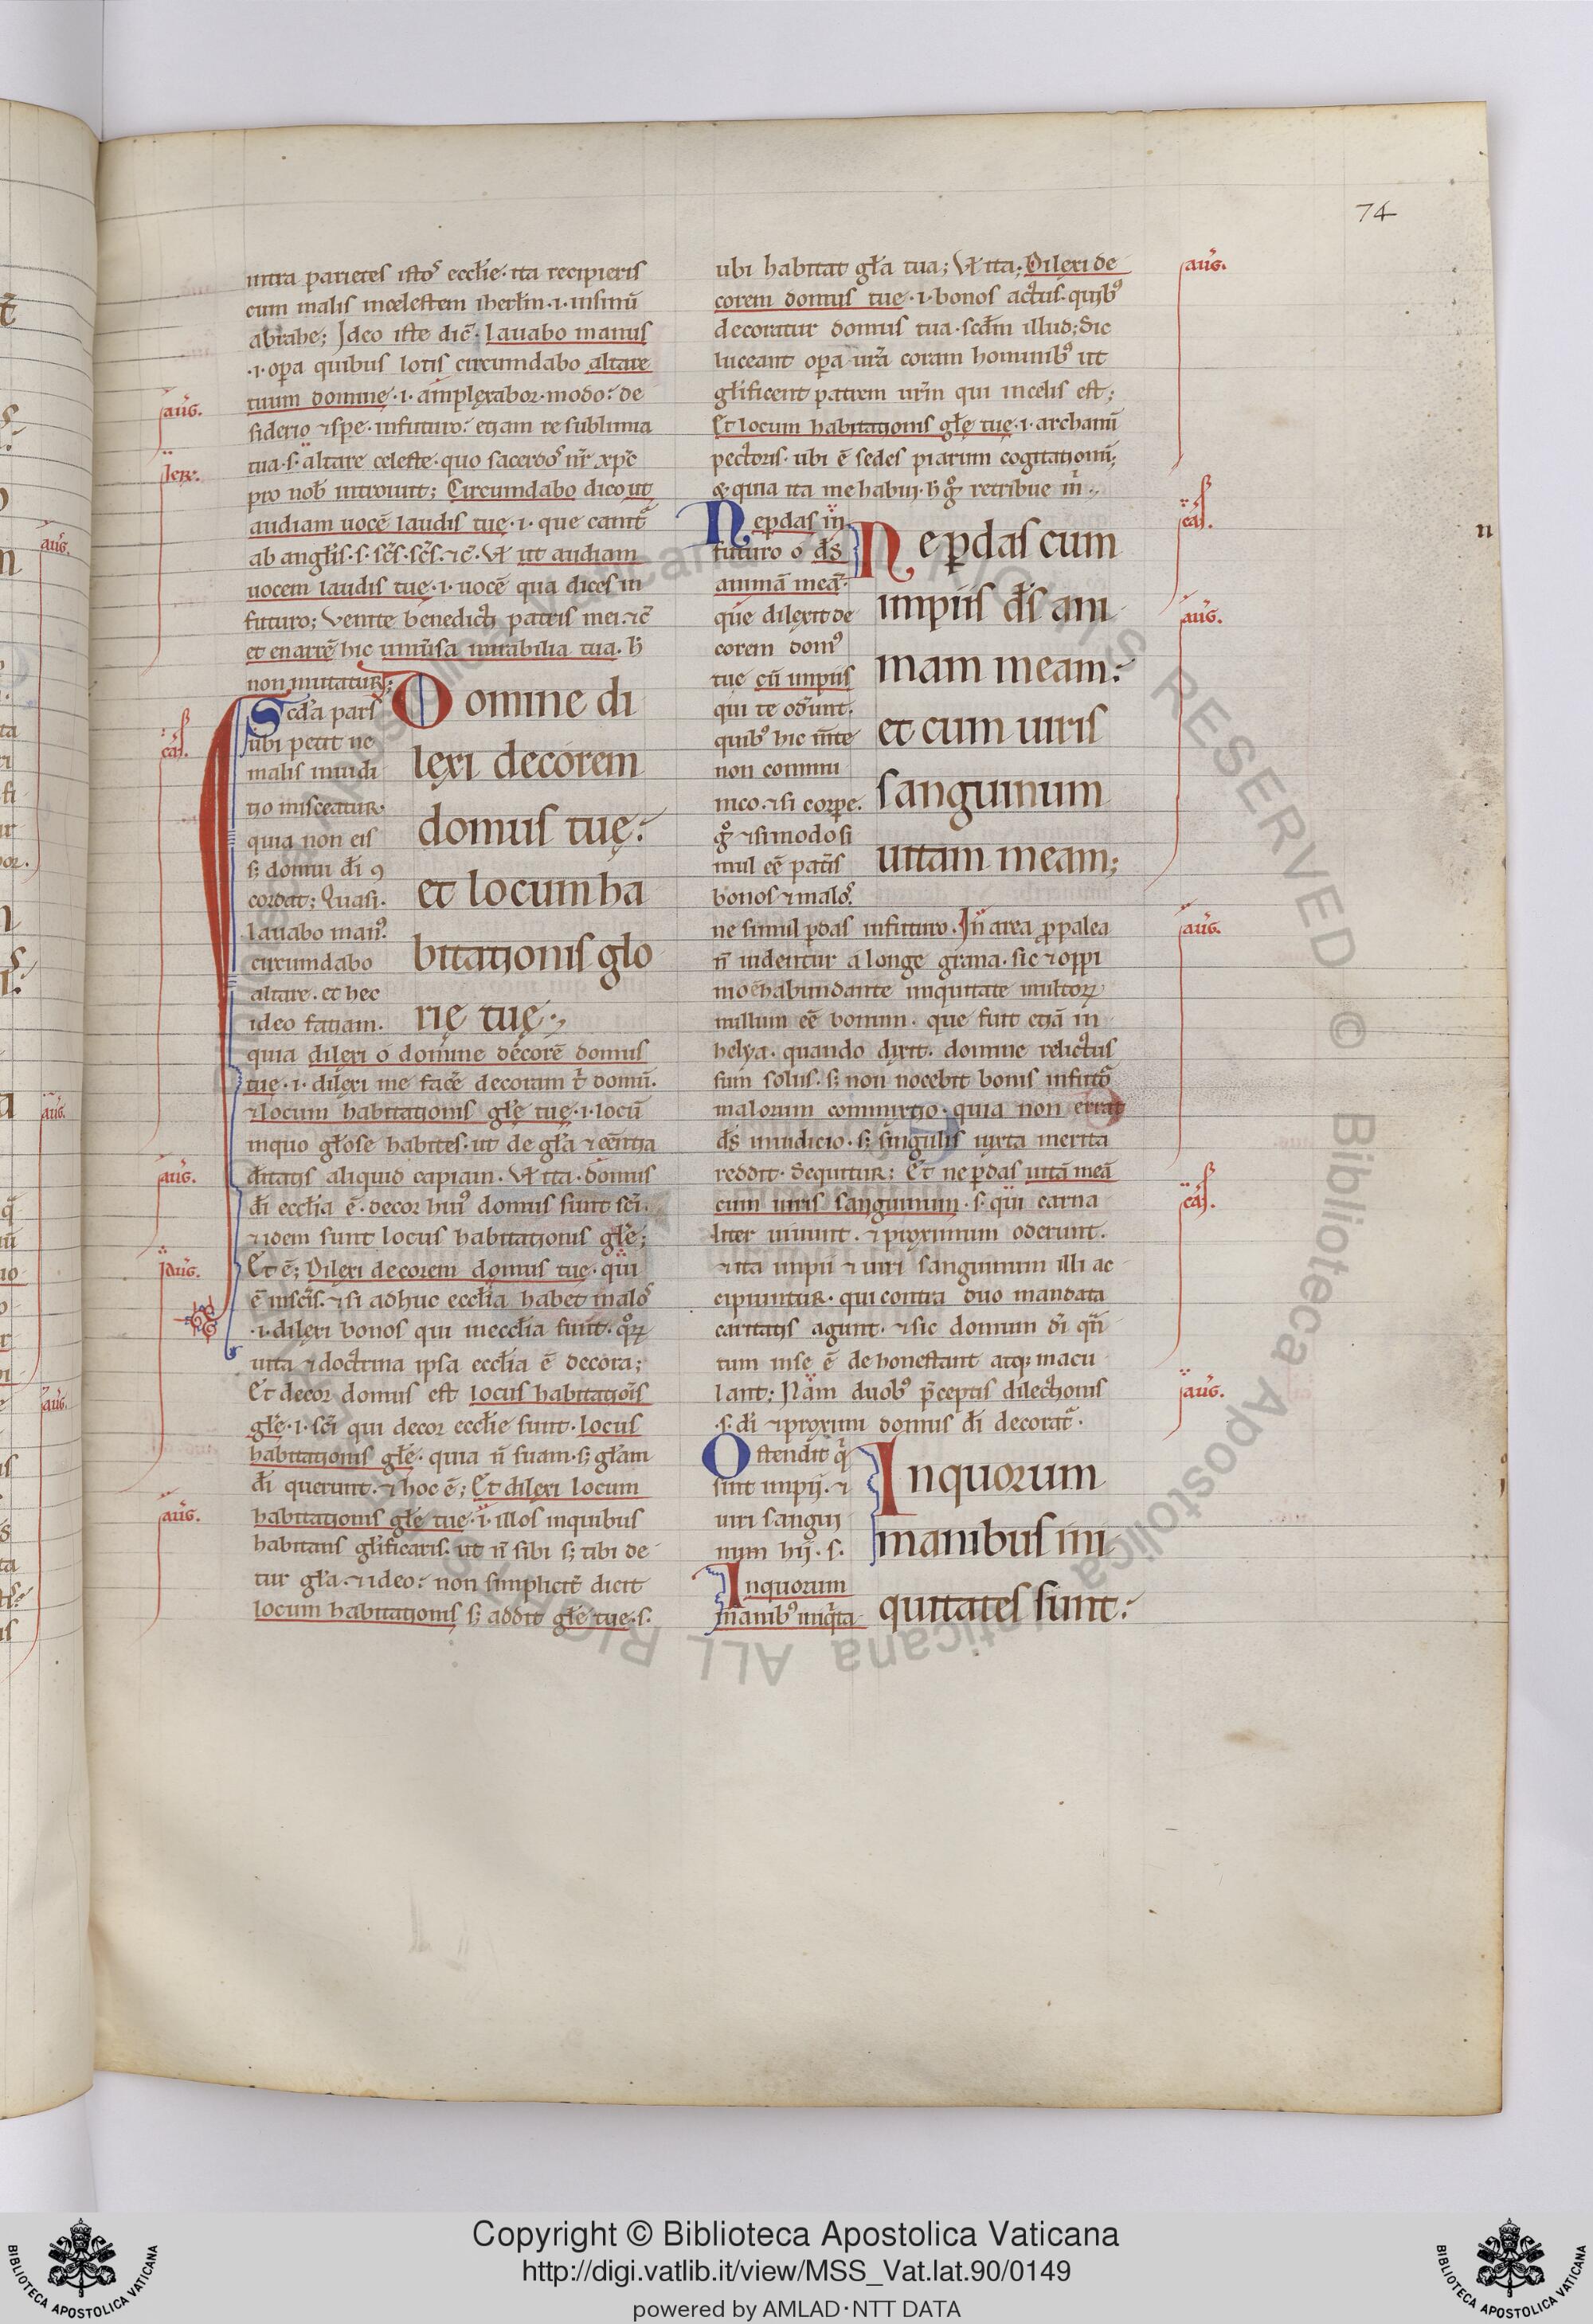 74
intra parietes istos eccl̄ie. ita recipieris
cum malis incelestem iherl̄m .i. insinū
abrahe; Ideo iste dic̄. Lauabo manus
.i. op̄a quibus lotis circumdabo altare
tuum domine .i. amplexabor. modo: de
siderio ⁊spe. infuturo: etiam re sublima
tua .s. altare celeste. quo sacerdos nr̄ xp̄c
pro nob̄ introiuit; Circumdabo dico ut
audiam uocē laudis tuę .i. que cantat̄
ab angl̄is .s. sc̄s. sc̄s. ⁊c̄. Vl̄ ut audiam
uocem laudis tuę .i. uocē qua dices in
futuro; Venite benedicti patris mei. ⁊c̄
et enarrē hic uniūsa mirabilia tua. h̄
non mutatur;
Scd̄a pars
ubi petit ne
malis inuidi
tio misceatur.
quia non eis
s; domui dī ꝯ
cordat; Quasi.
lauabo man9.
circumdabo
altare. et hec
ideo fatiam.
Domine di
lexi decorem
domus tuę:
et locum ha
bitationis glo
rię tuę.,
quia dilexi o domine decorē domus
tuę .i. dilexi me facē decoram t̄ domū.
⁊locum habitationis gl̄ę tuę .i. locū
inquo gl̄ose habites. ut de gl̄a ⁊cēntia
dītatis aliquid capiam. Vl̄ ita. domus
dī eccl̄ia ē. decor hui9 domus sunt sc̄i.
⁊idem sunt locus habitationis gl̄ę;
Et ē; Dilexi decorem domus tuę. qui
ē insc̄is. ⁊si adhuc eccl̄ia habet malos
.i. dilexi bonos qui ineccl̄ia sunt. qoꝝ
uita ⁊doctrina ipsa eccl̄ia ē decora;
Et decor domus est locus habitatiōis
gl̄ę .i. sc̄i qui decor eccl̄ie sunt. locus
habitationis gl̄ę. quia n̄ suam. s; gl̄am
dī querunt. ⁊hoc ē; Et dilexi locum
habitationis gl̄ę tuę .i. illos inquibus
habitans gl̄ificaris. ut n̄ sibi s; tibi de
tur gl̄a. ⁊ideo: non simplicit̄ dicit
locum habitationis s; addit gl̄ę tuę .s.
ubi habitat gl̄a tua; Vl̄ ita; Dilexi de
corem domus tuę .i. bonos actus. quib9
decoratur domus tua. scd̄m illud; Sic
luceant op̄a ur̄a coram hominib9 ut
gl̄ificent patrem ur̄m qui incelis est;
Et locum habitationis gl̄ę tuę .i. archanū
pectoris. ubi ē sedes piarum cogitationū;
quia ita me habui. retribue m̄.,
Nep̄das in
futuro o d̄s
animā meā.
que dilexit de
corem dom9
tuę cū impiis
qui te odūnt.
quib9 hic m̄te
non commu
nico. ⁊si corp̄e.
ḡ ⁊simodo si
mul eē patis
bonos ⁊malos.
Ne p̄das cum
impiis d̄s ani
mam meam:
et cum uiris
sanguinum
uitam meam;
ne simul p̄das infuturo. In area p̄ palea
n̄ uidentur a longe grana. sic ⁊oppi
mo ē habundante iniquitate multoꝝ
nullum eē bonum. que fuit etiā in
helya. quando dixit. domine relictus
sum solus. s; non nocebit bonis infuto
malorum commixtio. quia non errat
d̄s iniudicio. s; singulis iuxta merita
reddit. Sequitur; Et ne p̄das uitā meā
cum uiris sanguinum .s. qui carna
liter uiuunt. ⁊proximum oderunt.
⁊ita impii ⁊uiri sanguinum illi ac
cipiuntur. qui contra duo mandata
caritatis agunt. ⁊sic domum dī qn̄
tum inse ē dehonestant atq; macu
lant; Nam duob9 p̄ceptis dilectionis
.s. dī ⁊proximi domus dī decorat̄.
Ostendit q̄
sint impii. ⁊
uiri sangui
num hii .s.
Inquorum
manib9 iniq̄ta
Inquorum
manibus ini
quitates sunt:
auḡ.
Ier̄.
cas̄.
auḡ.
auḡ.
auḡ.
auḡ.
cas̄.
auḡ.
auḡ.
cas̄.
auḡ.
Copyright © Biblioteca Apostolica Vaticana
http://digi.vatlib.it/view/MSS_Vat.lat.90/0149
powered by AMLAD·NTT DATA
BIBLIOTECA APOSTOLICA VATICANA
BIBLIOTECA APOSTOLICA VATICANA